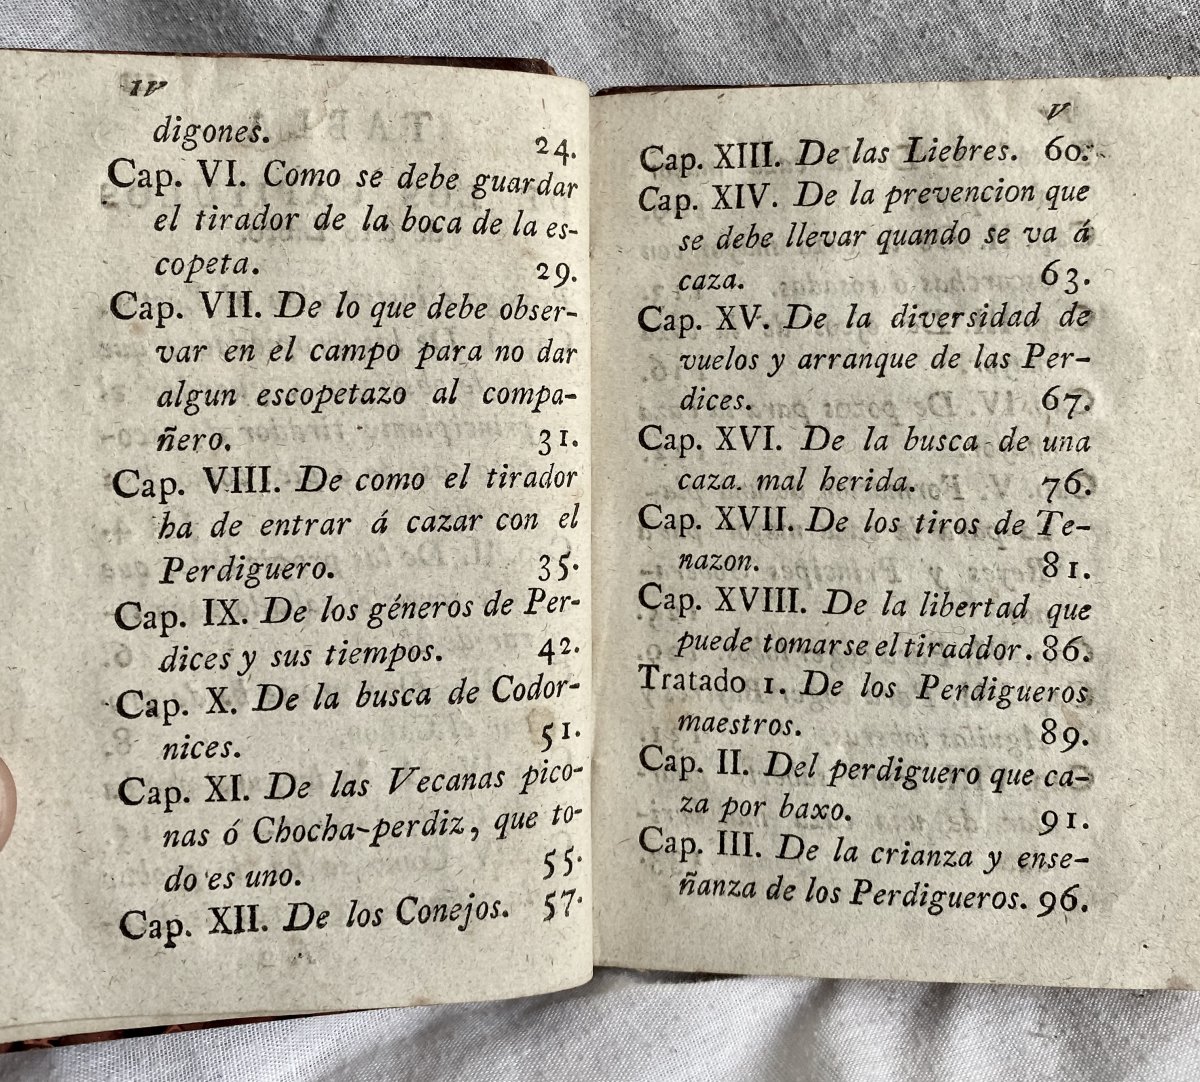 IV
digones. 24.
Cap. VI. Como se debe guardar
el tirador de la boca de la es-
copeta. 29.
Cap. VII. De lo que debe obser-
var en el campo para no dar
algun escopetazo al compa-
ñero. 31.
Cap. VIII. De como el tirador
ha de entrar á cazar con el
Perdiguero. 35.
Cap. IX. De los géneros de Per-
dices y sus tiempos. 42.
Cap. X. De la busca de Codor-
nices. 51.
Cap. XI. De las Vecanas pico-
nas ó Chocha-perdiz, que to-
do es uno. 55.
Cap. XII. De los Conejos. 57.
V
Cap. XIII. De las Liebres. 60.
Cap. XIV. De la prevencion que
se debe llevar quando se va á
caza. 63.
Cap. XV. De la diversidad de
vuelos y arranque de las Per-
dices. 67.
Cap. XVI. De la busca de una
caza. mal herida. 76.
Cap. XVII. De los tiros de Te-
nazon. 81.
Cap. XVIII. De la libertad que
puede tomarse el tiraddor. 86.
Tratado 1. De los Perdigueros
maestros. 89.
Cap. II. Del perdiguero que ca-
za por baxo. 91.
Cap. III. De la crianza y ense-
ñanza de los Perdigueros. 96.